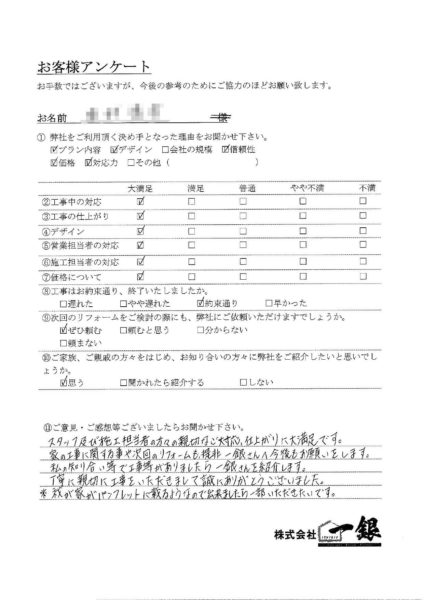 お客様アンケート
お手数ではございますが、今後の参考のためにご協力のほどお願い致します。
お名前 様
①弊社をご利用頂く決め手となった理由をお聞かせ下さい。
☑プラン内容 ☑デザイン □会社の規模 ☑信頼性
☑価格 ☑対応力 □その他（ ）
大満足 満足 普通 やや不満 不満
②工事中の対応 ☑ □ □ □ □
③工事の仕上がり ☑ □ □ □ □
④デザイン ☑ □ □ □ □
⑤営業担当者の対応 ☑ □ □ □ □
⑥施工担当者の対応 ☑ □ □ □ □
⑦価格について ☑ □ □ □ □
⑧工事はお約束通り、終了いたしましたか。
□遅れた □やや遅れた ☑約束通り □早かった
⑨次回のリフォームをご検討の際にも、弊社にご依頼いただけますでしょうか。
☑ぜひ頼む □頼むと思う □分からない
□頼まない
⑩ご家族、ご親戚の方々をはじめ、お知り合いの方々に弊社をご紹介したいと思いでし
ょうか。
☑思う □聞かれたら紹介する □しない
⑪ご意見・ご感想等ございましたらお聞かせ下さい。
スタッフ及び施工担当者の方々の親切なご対応、仕上がりに大満足です。
家の工事に関する事や次回のリフォームも是非一銀さんへ今後もお願いをします。
私の知り合い等で工事等がありましたら一銀さんを紹介します。
丁寧に親切に工事をいただきまして誠にありがとうございました。
＊我が家がパンフレットに載るようなので出来ましたら一部いただきたいです。
株式会社 一銀